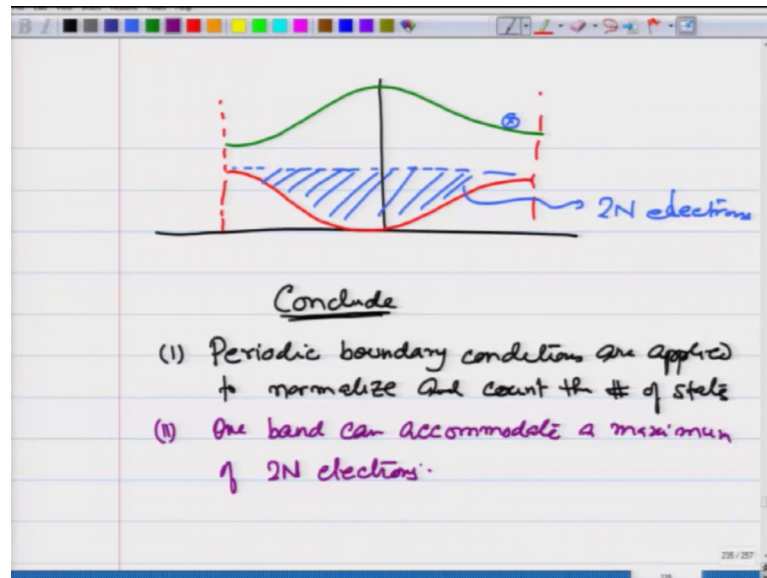 2N electrons
Conclude
(I) Periodic boundary conditions are applied
to normalize and count the # of state
(II) One band can accommodate a maximum
of 2N electrons.
235 / 257